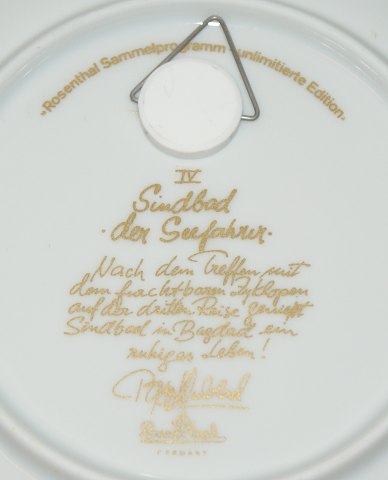 »Rosenthal Sammelprogramm · unlimitierte Edition«
IV
Sindbad
· der Seefahrer ·
Nach dem Treffen mit
dem furchtbaren Zyklopen
auf der dritten Reise genießt
Sindbad in Bagdad ein
ruhiges Leben!
GERMANY